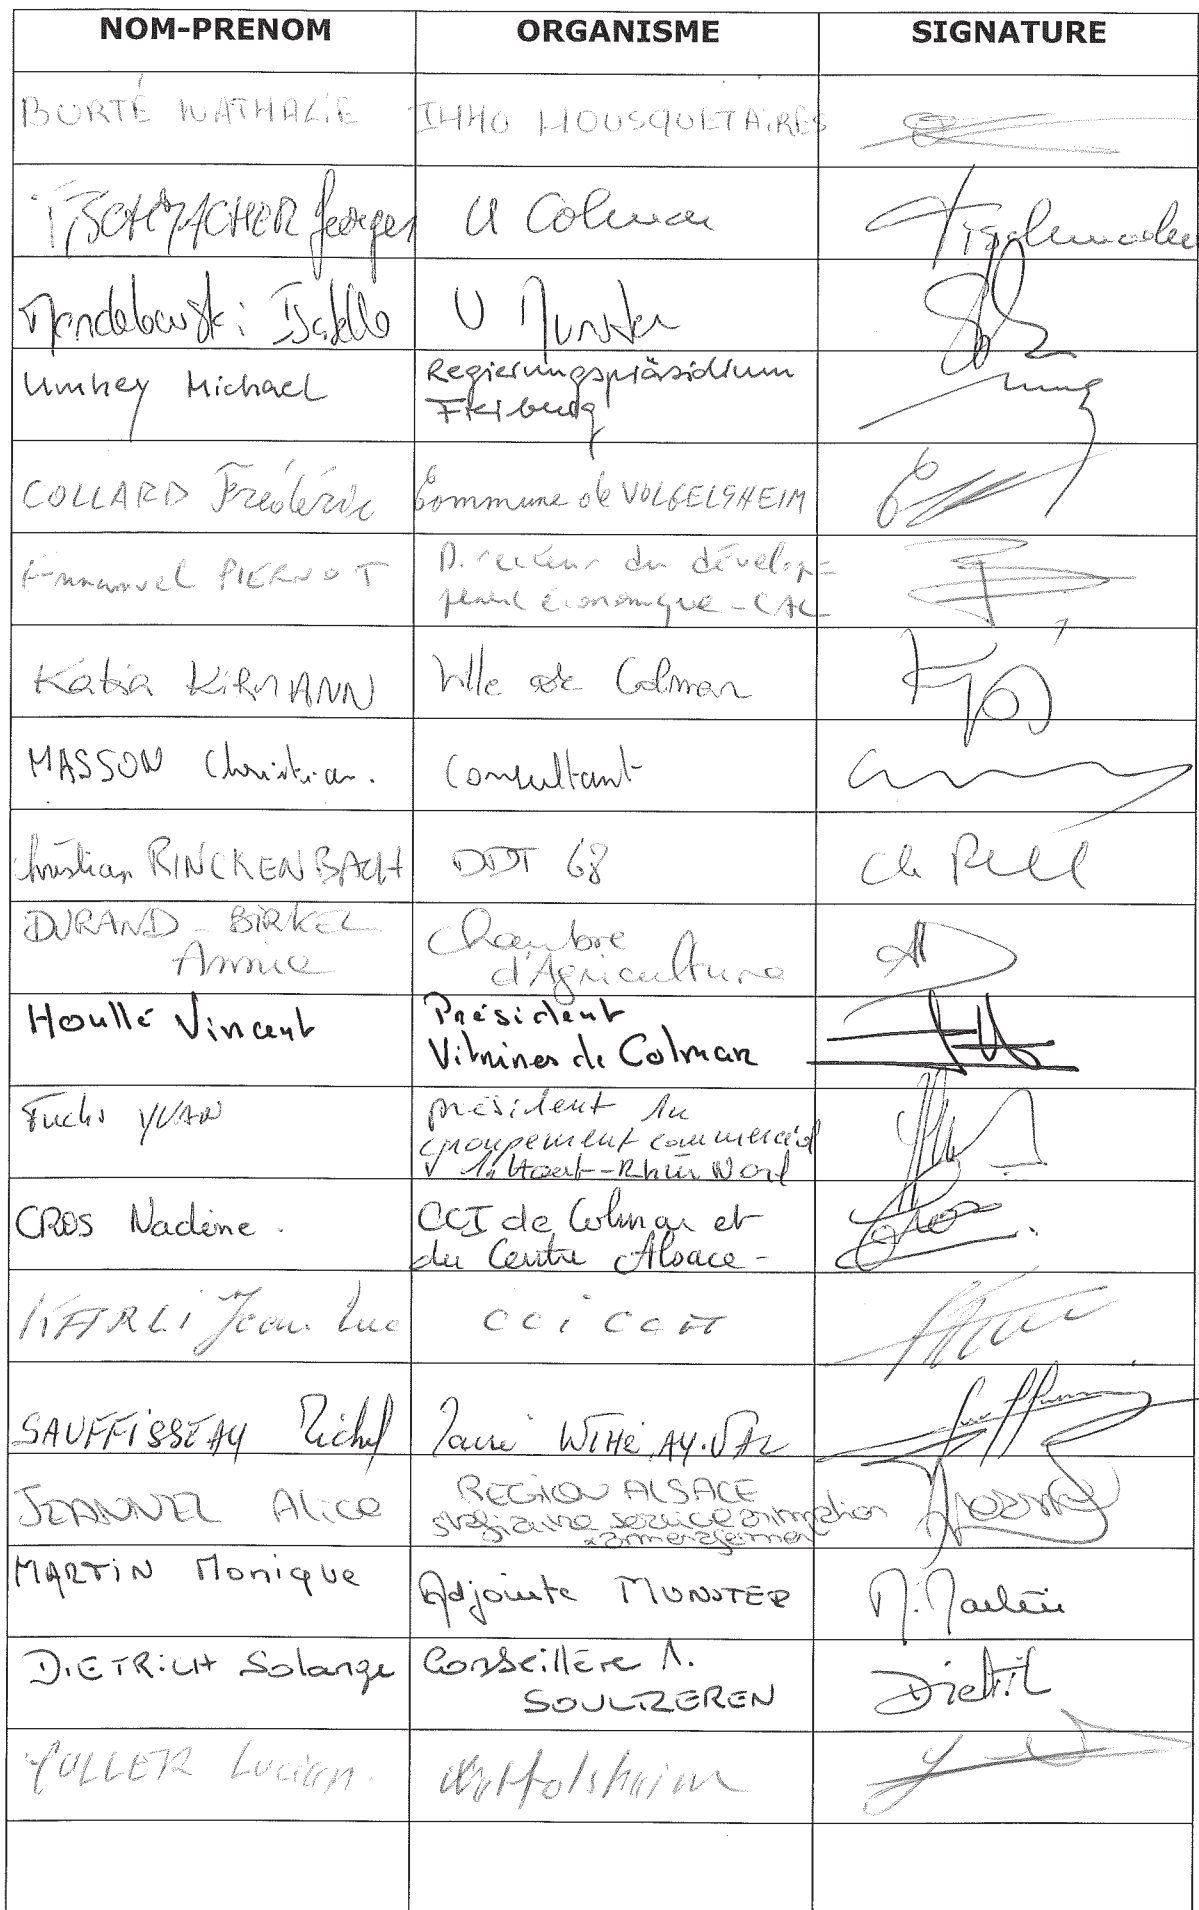 NOM-PRENOM ORGANISME SIGNATURE
BURTÉ NATHALIE IMMO MOUSQUETAIRES
TSCHMACHER Georges U Colmar
Isabelle U Munster
Umhey Michael Regierungspräsidium
Freiburg
COLLARD Frédéric Commune de VOLGELSHEIM
Emmanuel PIERNOT Directeur du dévelop=
pement économique - CAC
Katia KIRMANN Ville de Colmar
MASSON Christian. Consultant
Christian RINCKENBACH DDT 68
DURAND - BIRKEL Chambre
Annie d'Agriculture
Houllé Vincent Président
Vitrines de Colmar
Fuchs YVAN président du
groupement commercial
du Haut-Rhin Nord
CROS Nadène. CCI de Colmar et
du Centre Alsace -
KARLI Jean Luc CCI CCA
SAUFFISSEAU Michel WIHR.AU.VAL
JEANNEL Alice REGION ALSACE
stagiaire service animation
&aménagement
MARTIN Monique Adjointe MUNSTER M. Martin
DIETRICH Solange Conseillère M.
SOULTZEREN
MULLER Lucien. Wettolsheim